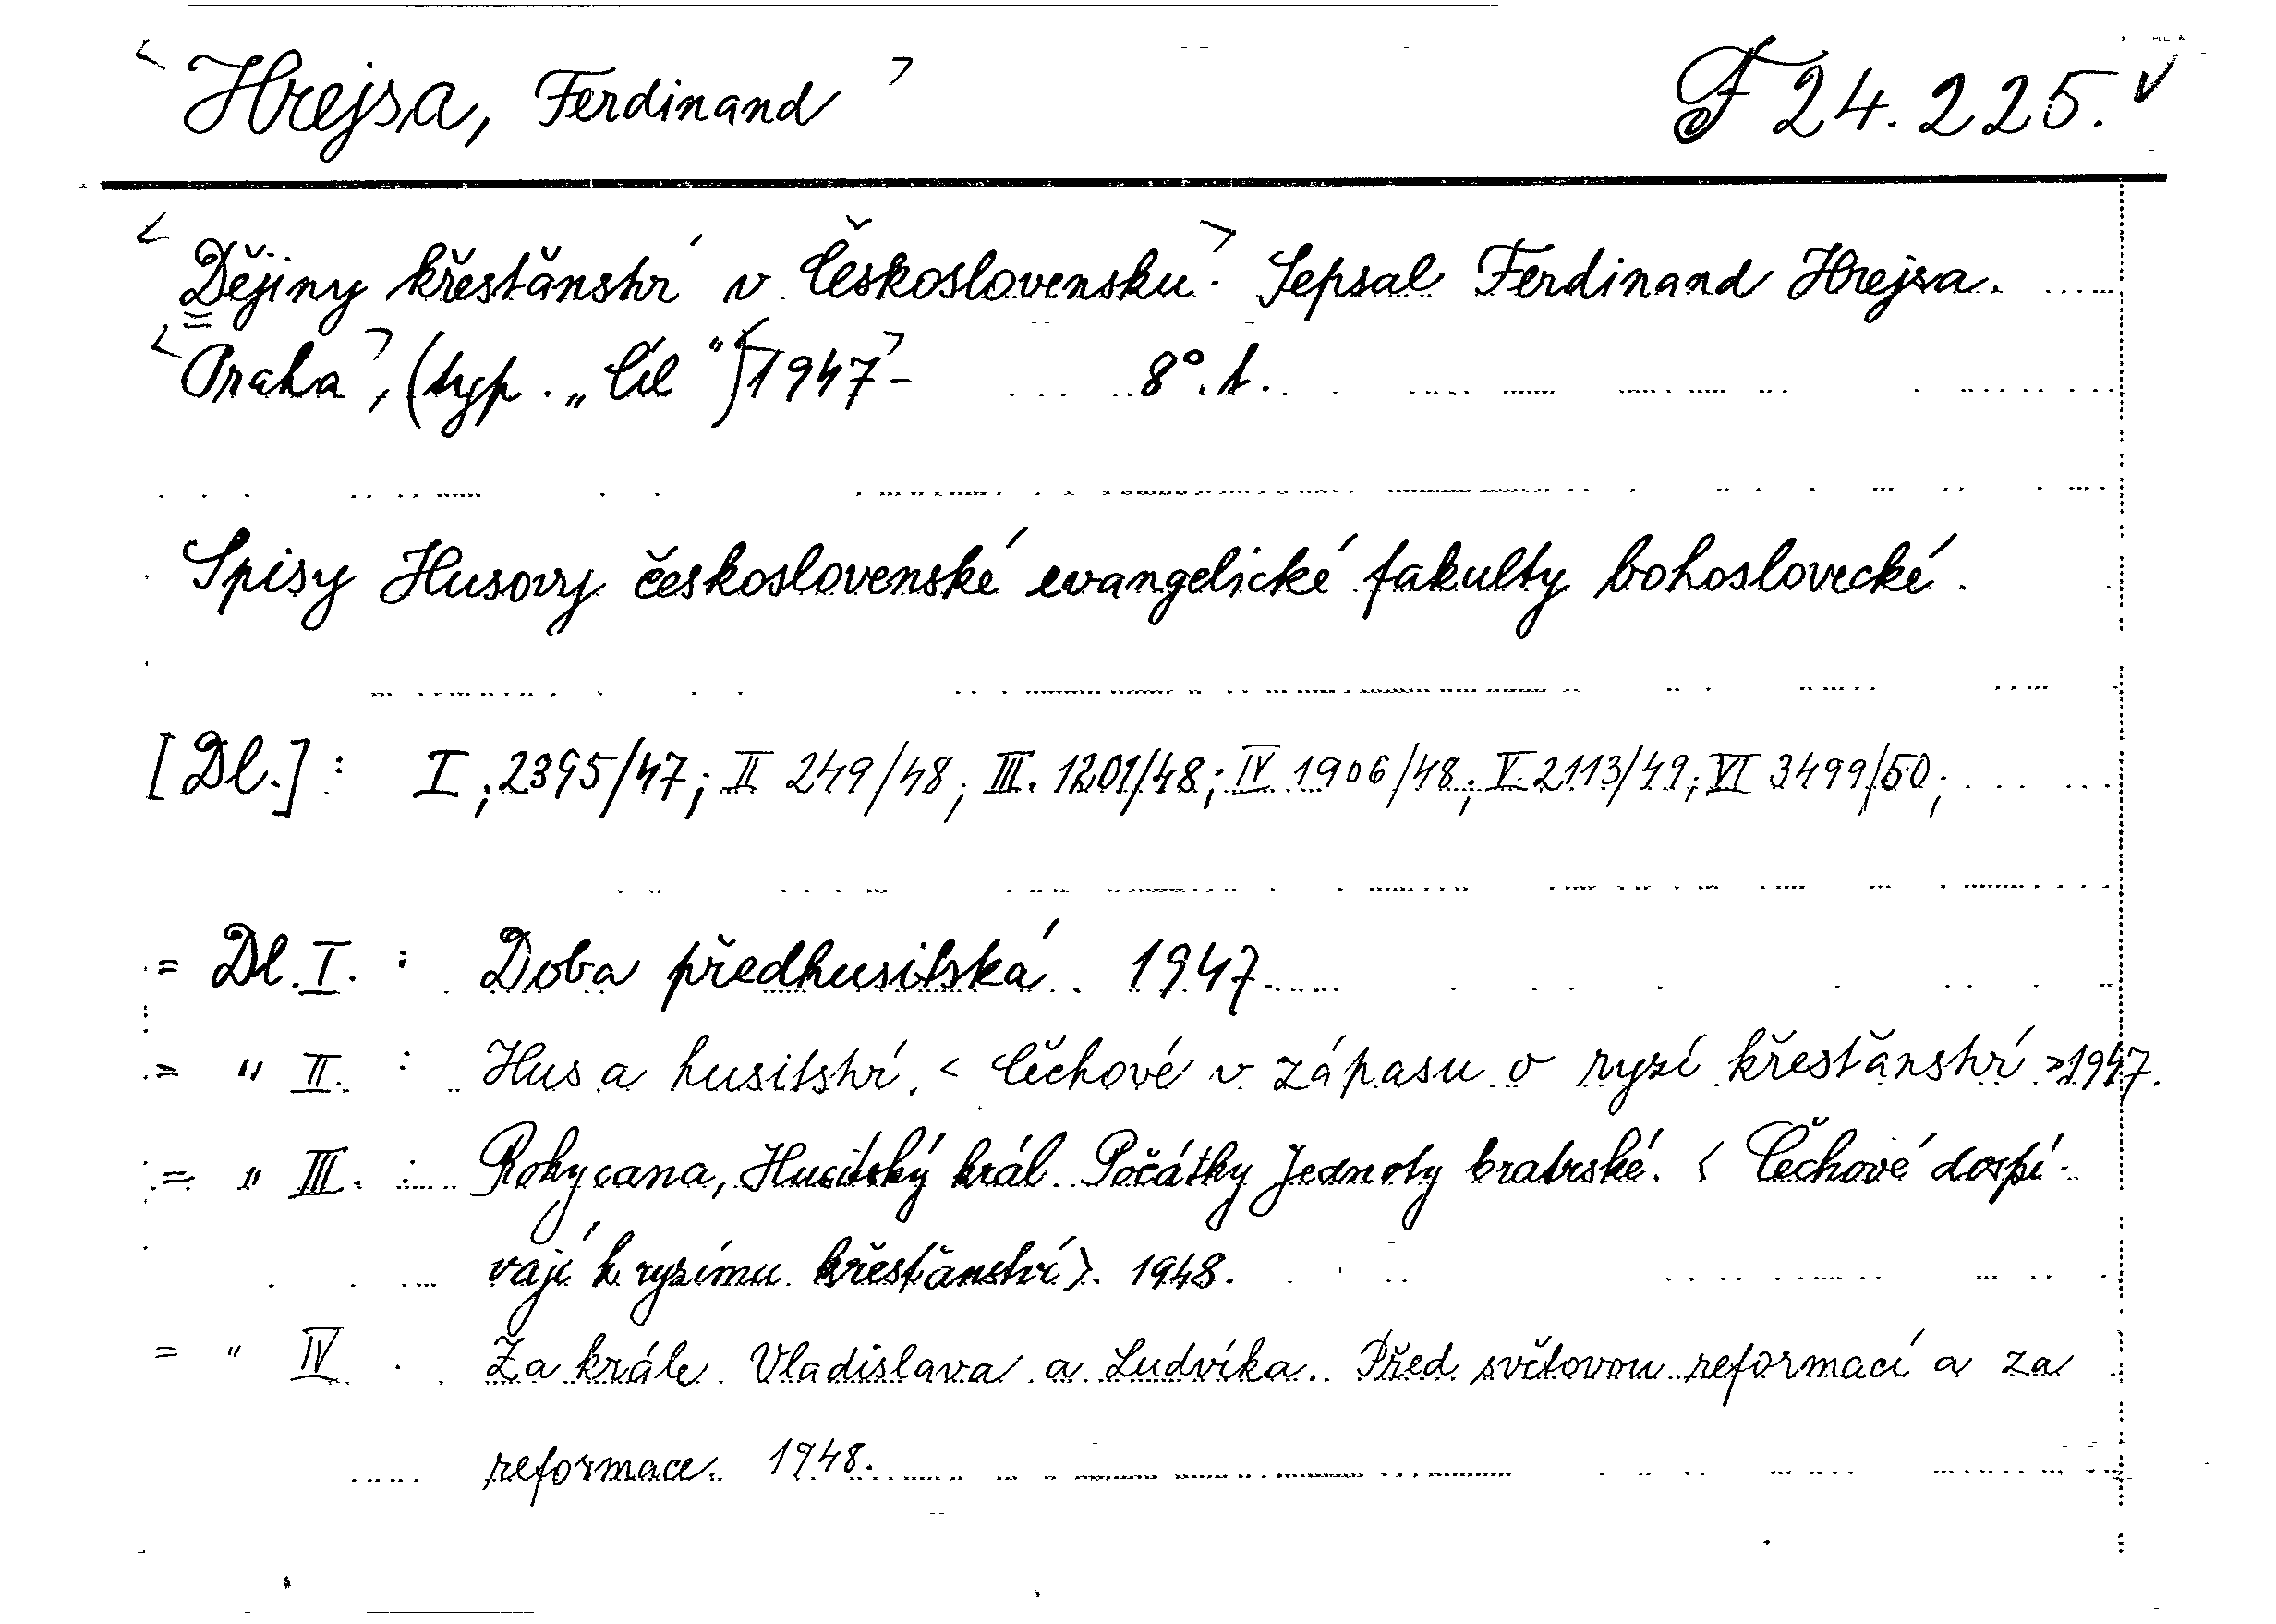 < Hrejsa, Ferdinand > F 24.225. v
< Dějiny křesťanství v Československu >. Sepsal Ferdinand Hrejsa.
< Praha >, (typ. „Cíl") < 1947 > - 8°. t.
Spisy Husovy československé evangelické fakulty bohoslovecké.
[Dl.] : I ; 2395/47; II 249/48; III. 1201/48; IV 1906/48; V. 2113/49; VI 3499/50;
= Dl. I. : Doba předhusitská. 1947
= " II. : Hus a husitství. < Čechové v zápasu o ryzí křesťanství > 1947.
= " III. : Rokycana, Husitský král. Počátky Jednoty bratrské. < Čechové dospí-
vají k ryzímu křesťanství >. 1948.
= " IV . Za krále Vladislava a Ludvíka. Před světovou reformací a za
reformace. 1948.